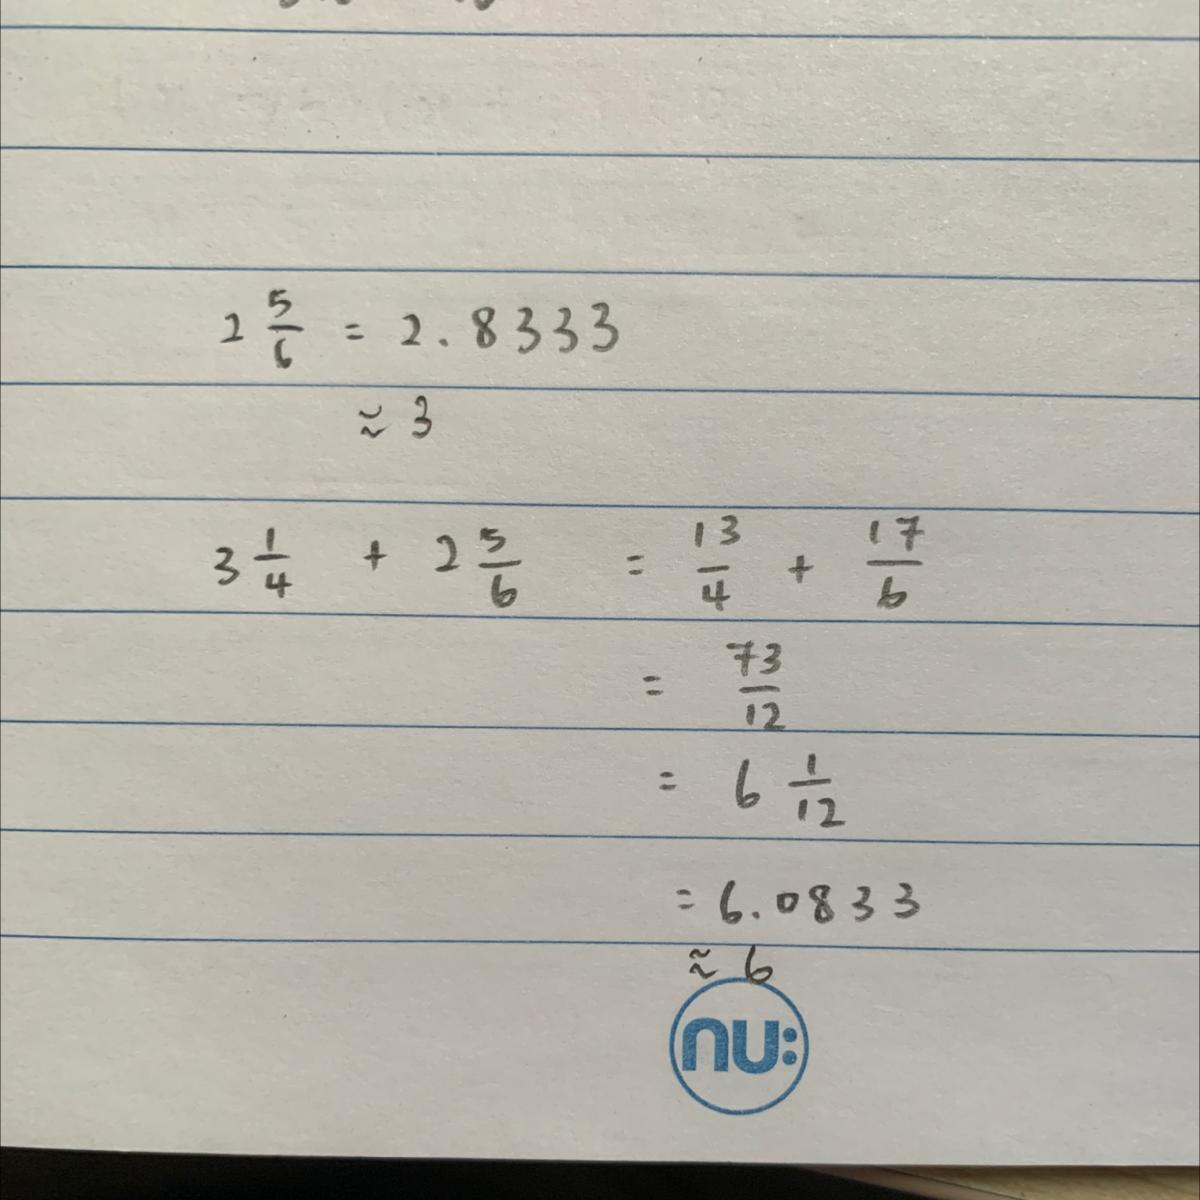 2 5/6 = 2.8333
≈ 3
3 1/4 + 2 5/6 = 13/4 + 17/6
= 73/12
= 6 1/12
= 6.0833
≈ 6
nu: